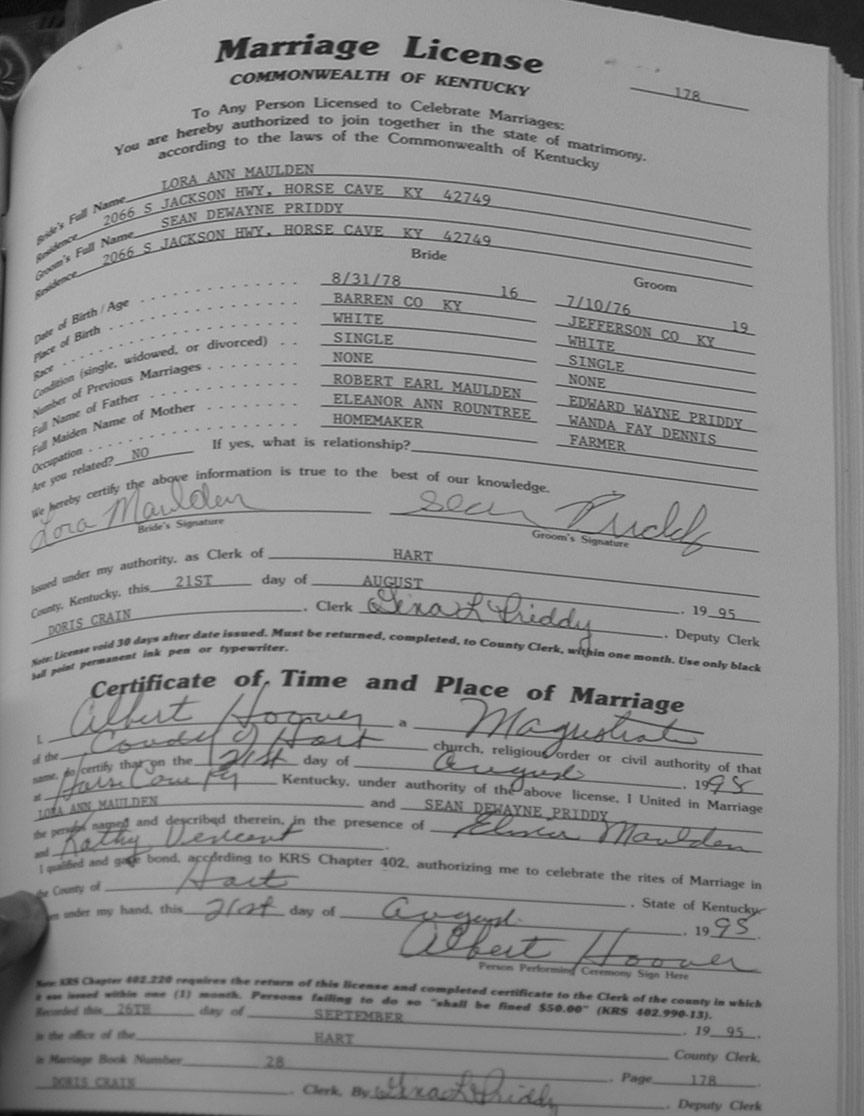 Marriage License
COMMONWEALTH OF KENTUCKY
178
To Any Person Licensed to Celebrate Marriages:
You are hereby authorized to join together in the state of matrimony,
according to the laws of the Commonwealth of Kentucky
Bride's Full Name LORA ANN MAULDEN
Residence 2066 S JACKSON HWY, HORSE CAVE KY 42749
Groom's Full Name SEAN DEWAYNE PRIDDY
Residence 2066 S JACKSON HWY, HORSE CAVE KY 42749
Bride Groom
Date of Birth / Age 8/31/78 16 7/10/76 19
Place of Birth BARREN CO KY JEFFERSON CO KY
Race WHITE WHITE
Condition (single, widowed, or divorced) SINGLE SINGLE
Number of Previous Marriages NONE NONE
Full Name of Father ROBERT EARL MAULDEN EDWARD WAYNE PRIDDY
Full Maiden Name of Mother ELEANOR ANN ROUNTREE WANDA FAY DENNIS
Occupation HOMEMAKER FARMER
Are you related? NO If yes, what is relationship?
We hereby certify the above information is true to the best of our knowledge.
Lora Maulden Sean Priddy
Bride's Signature Groom's Signature
Issued under my authority, as Clerk of HART
County, Kentucky, this 21ST day of AUGUST , 19 95
DORIS CRAIN , Clerk Gina L Priddy , Deputy Clerk
Note: License void 30 days after date issued. Must be returned, completed, to County Clerk, within one month. Use only black
ball point permanent ink pen or typewriter.
Certificate of Time and Place of Marriage
I, Albert Hoover a Magistrate
of the County of Hart church, religious order or civil authority of that
name, do certify that on the 21st day of August , 1995
at Horse Cave Ky Kentucky, under authority of the above license, I United in Marriage
LORA ANN MAULDEN and SEAN DEWAYNE PRIDDY
the persons named and described therein, in the presence of Maulden
and Kathy Vincent .
I qualified and gave bond, according to KRS Chapter 402, authorizing me to celebrate the rites of Marriage in
the County of Hart , State of Kentucky.
under my hand, this 21st day of August , 1995.
Albert Hoover
Person Performing Ceremony Sign Here
Note: KRS Chapter 402.220 requires the return of this license and completed certificate to the Clerk of the county in which
it was issued within one (1) month. Persons failing to do so "shall be fined $50.00" (KRS 402.990-13).
Recorded this 26TH day of SEPTEMBER , 19 95,
in the office of the HART County Clerk,
in Marriage Book Number 28 , Page 178 .
DORIS CRAIN , Clerk, By Gina L Priddy , Deputy Clerk